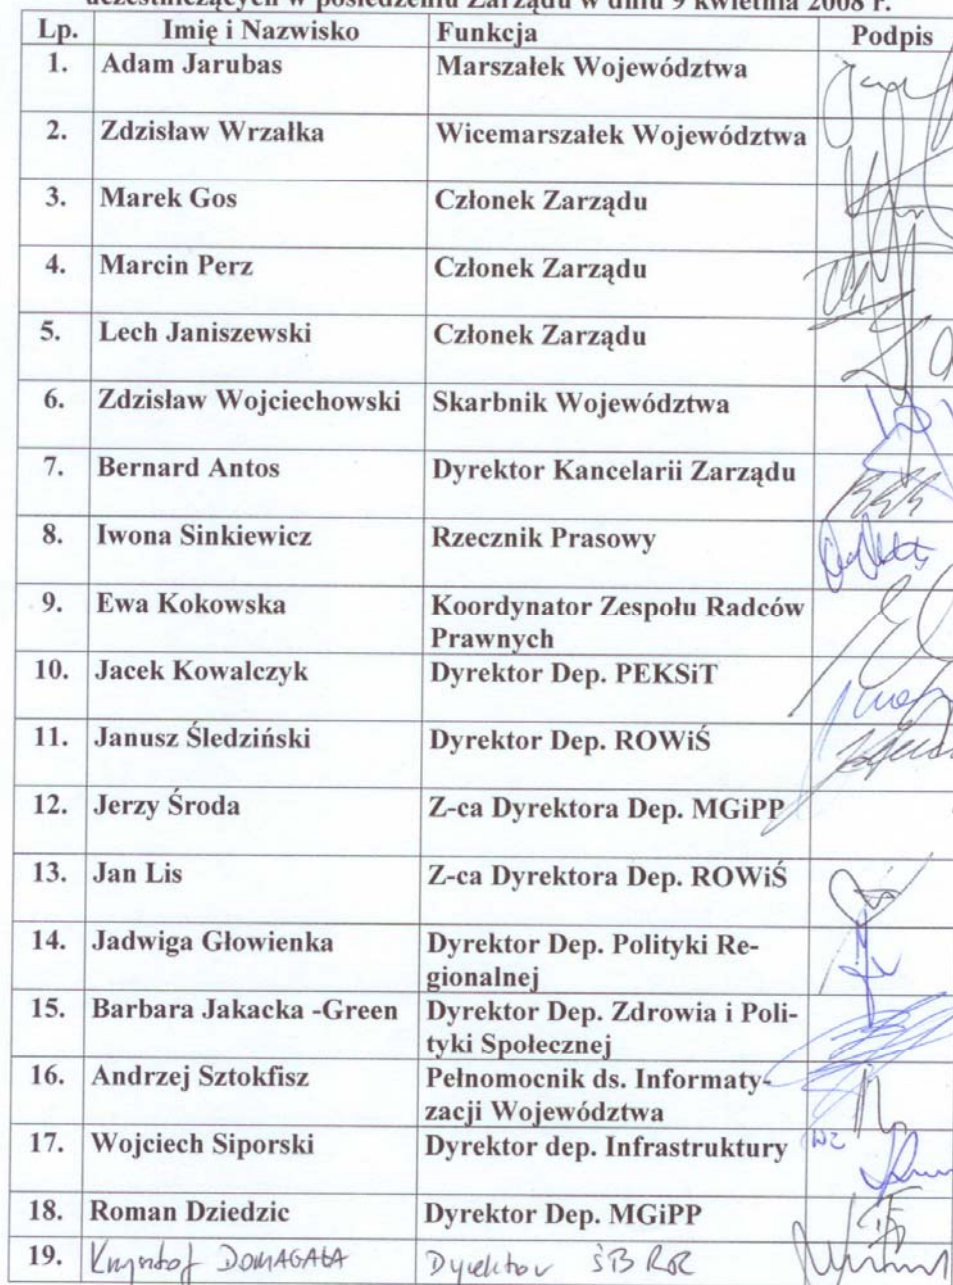 uczestniczących w posiedzeniu Zarządu w dniu 9 kwietnia 2008 r.
Lp. Imię i Nazwisko Funkcja Podpis
1. Adam Jarubas Marszałek Województwa
2. Zdzisław Wrzałka Wicemarszałek Województwa
3. Marek Gos Członek Zarządu
4. Marcin Perz Członek Zarządu
5. Lech Janiszewski Członek Zarządu
6. Zdzisław Wojciechowski Skarbnik Województwa
7. Bernard Antos Dyrektor Kancelarii Zarządu
8. Iwona Sinkiewicz Rzecznik Prasowy
9. Ewa Kokowska Koordynator Zespołu Radców
Prawnych
10. Jacek Kowalczyk Dyrektor Dep. PEKSiT
11. Janusz Śledziński Dyrektor Dep. ROWiŚ
12. Jerzy Środa Z-ca Dyrektora Dep. MGiPP
13. Jan Lis Z-ca Dyrektora Dep. ROWiŚ
14. Jadwiga Głowienka Dyrektor Dep. Polityki Re-
gionalnej
15. Barbara Jakacka -Green Dyrektor Dep. Zdrowia i Poli-
tyki Społecznej
16. Andrzej Sztokfisz Pełnomocnik ds. Informaty-
zacji Województwa
17. Wojciech Siporski Dyrektor dep. Infrastruktury WZ
18. Roman Dziedzic Dyrektor Dep. MGiPP
19. Krzysztof DOMAGAŁA Dyrektor ŚBRR